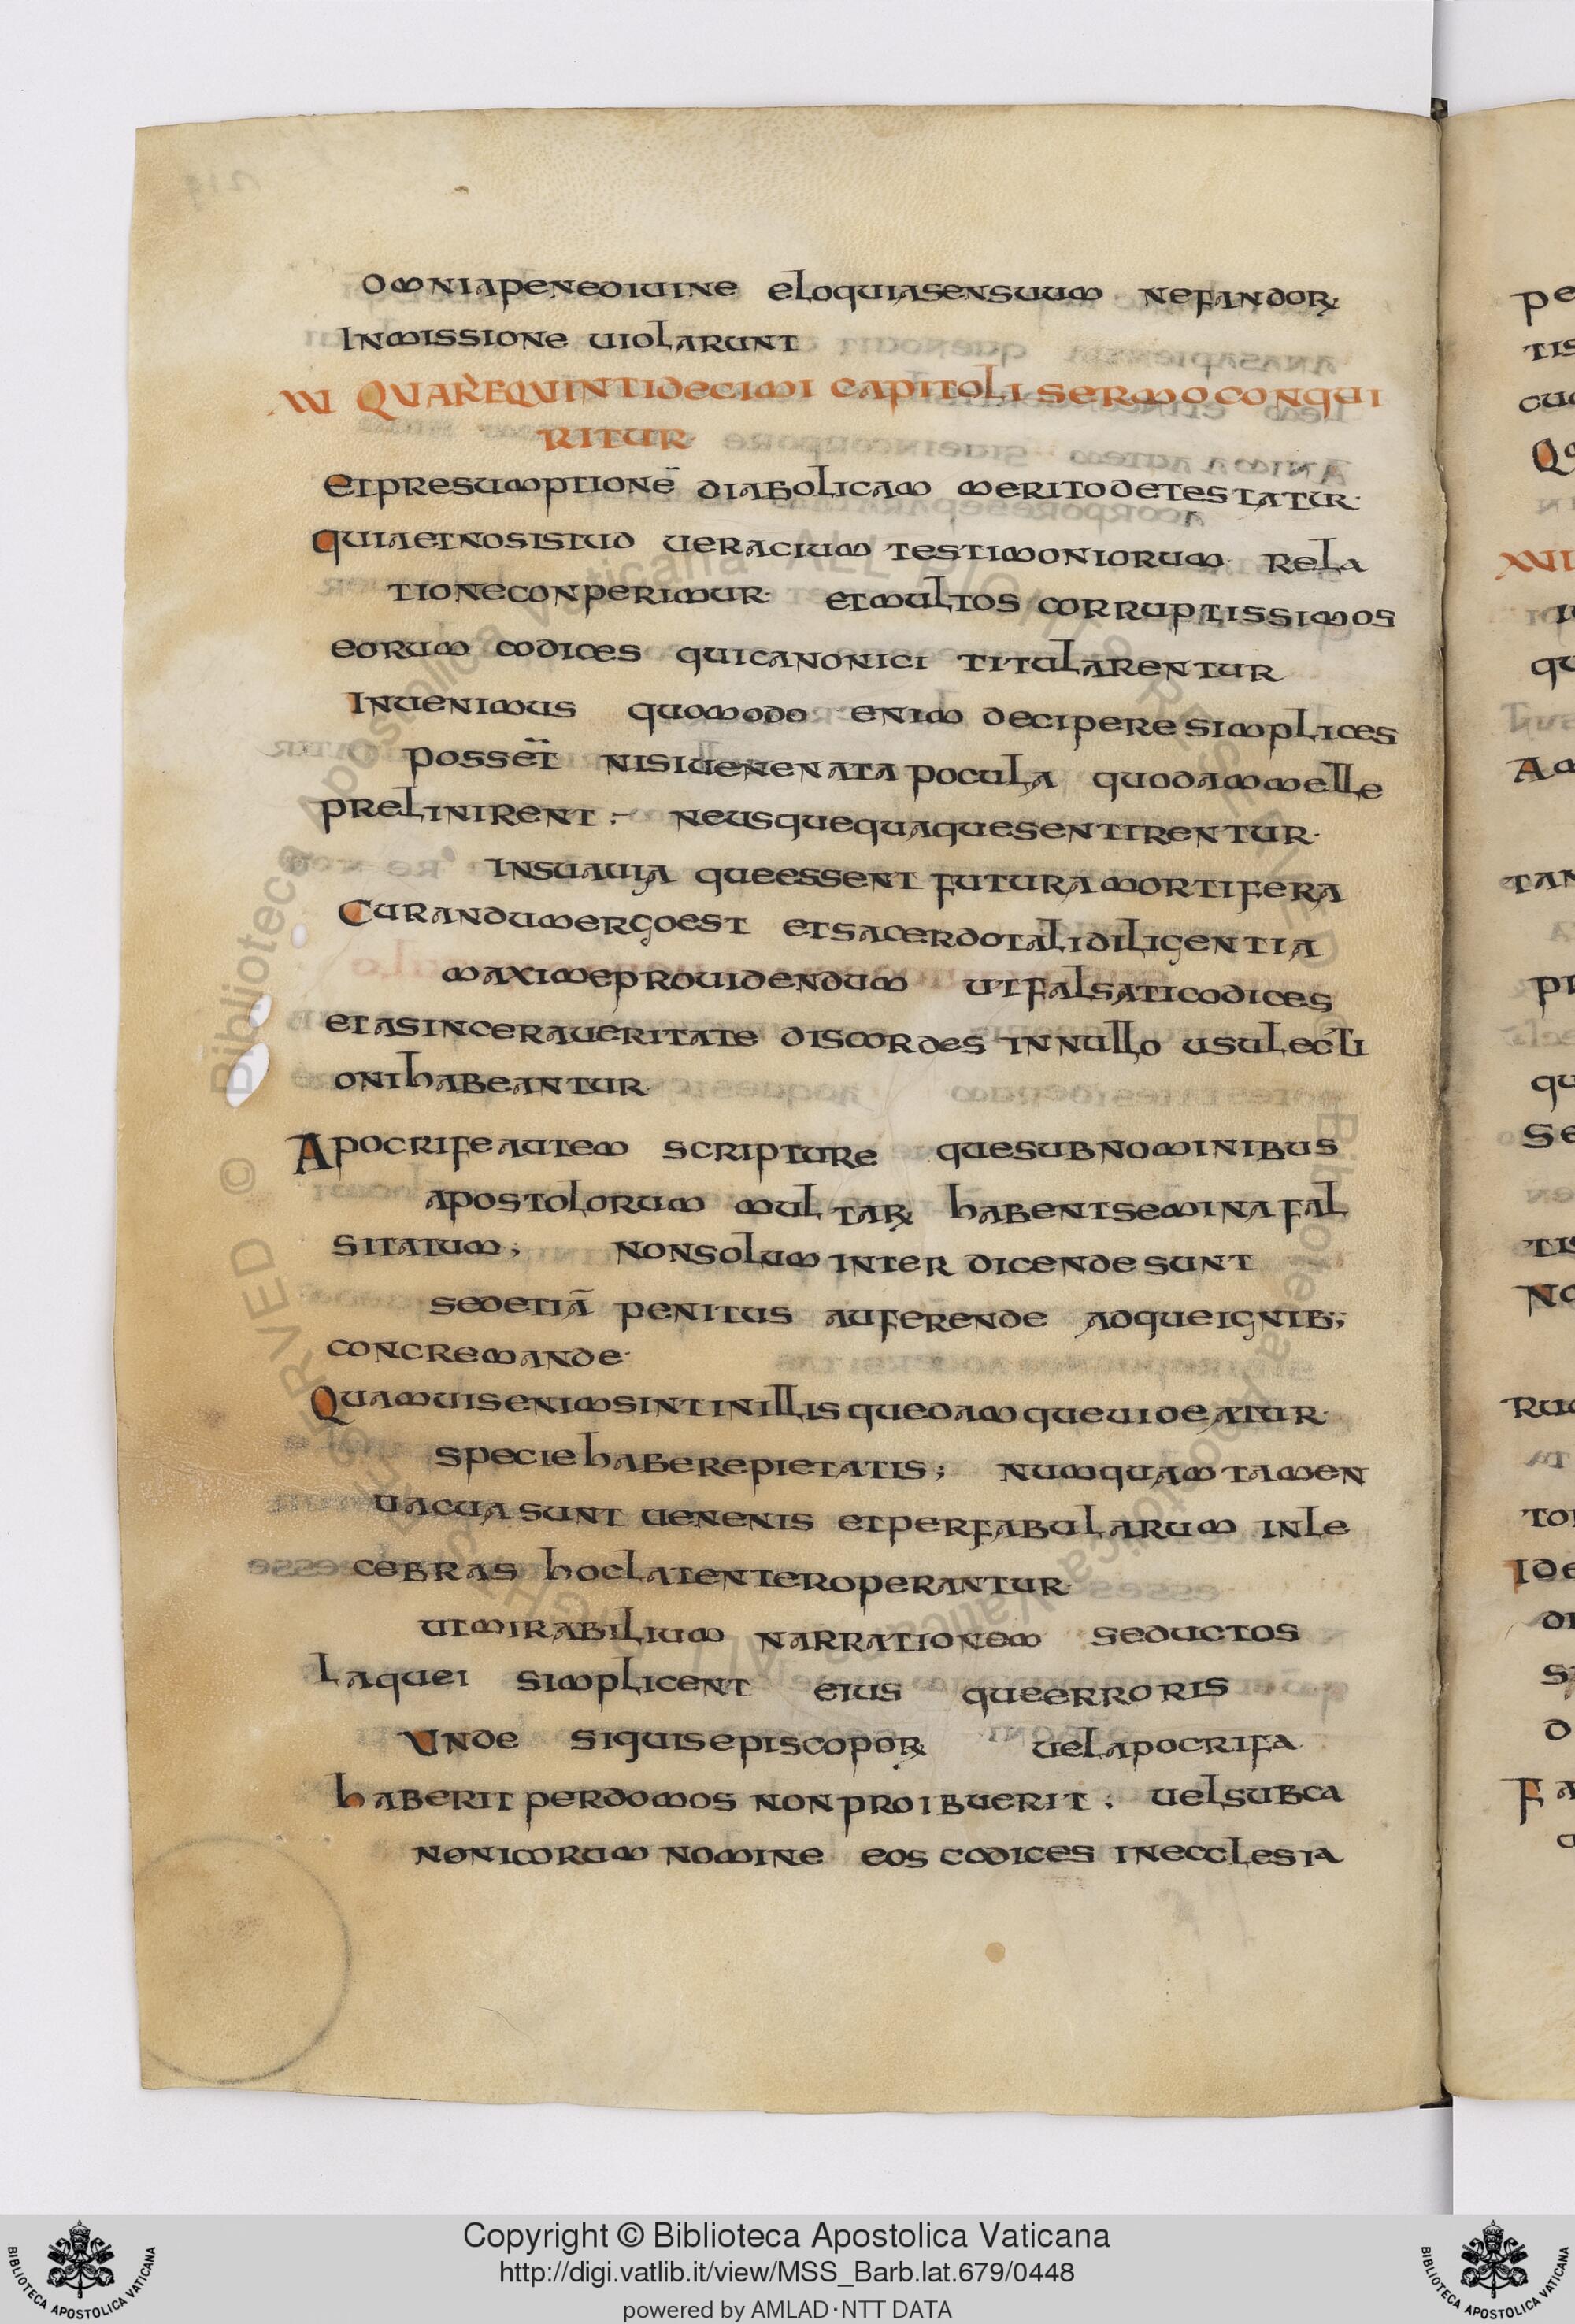 omnia pene diuine eloquia sensuum nefandoꝝ
inmissione uiolarunt
.XV QUARE QUINTI decimi capitoli sermo conqui
ritur
et presumptionē diabolicam merito detestatur·
quia et nos istud ueracium testimoniorum rela
tione conperimur· et multos corruptissimos
eorum codices qui canonici titularentur
Inuenimus quomodo enim decipere simplices
posset nisi uenenata pocula quodam melle
prelinirent :- ne usquequaque sentirentur·
insuauia que essent futura mortifera
Curandum ergo est et sacerdotali diligentia
maxime prouidendum ut falsati codices
et a sincera ueritate discordes in nullo usu lecti
oni habeantur·
Apocrife autem scripture que sub nominibus
apostolorum multaꝝ habent semina fal
sitatum; non solum inter dicende sunt
sed etiā penitus auferende adque ignib;;
concremande·
Quamuis enim sint in illis quedam que uideatur·
specie habere pietatis; numquam tamen
uacua sunt uenenis et per fabularum inle
cebras hoc latenter operantur·
ut mirabilium narrationem seductos
laquei simplicent eius que erroris
Unde si quis episcopoꝝ uel apocrifa
haberit per domos non proibuerit; uel sub ca
nonicorum nomine eos codices in ecclesia
Copyright © Biblioteca Apostolica Vaticana
http://digi.vatlib.it/view/MSS_Barb.lat.679/0448
powered by AMLAD·NTT DATA